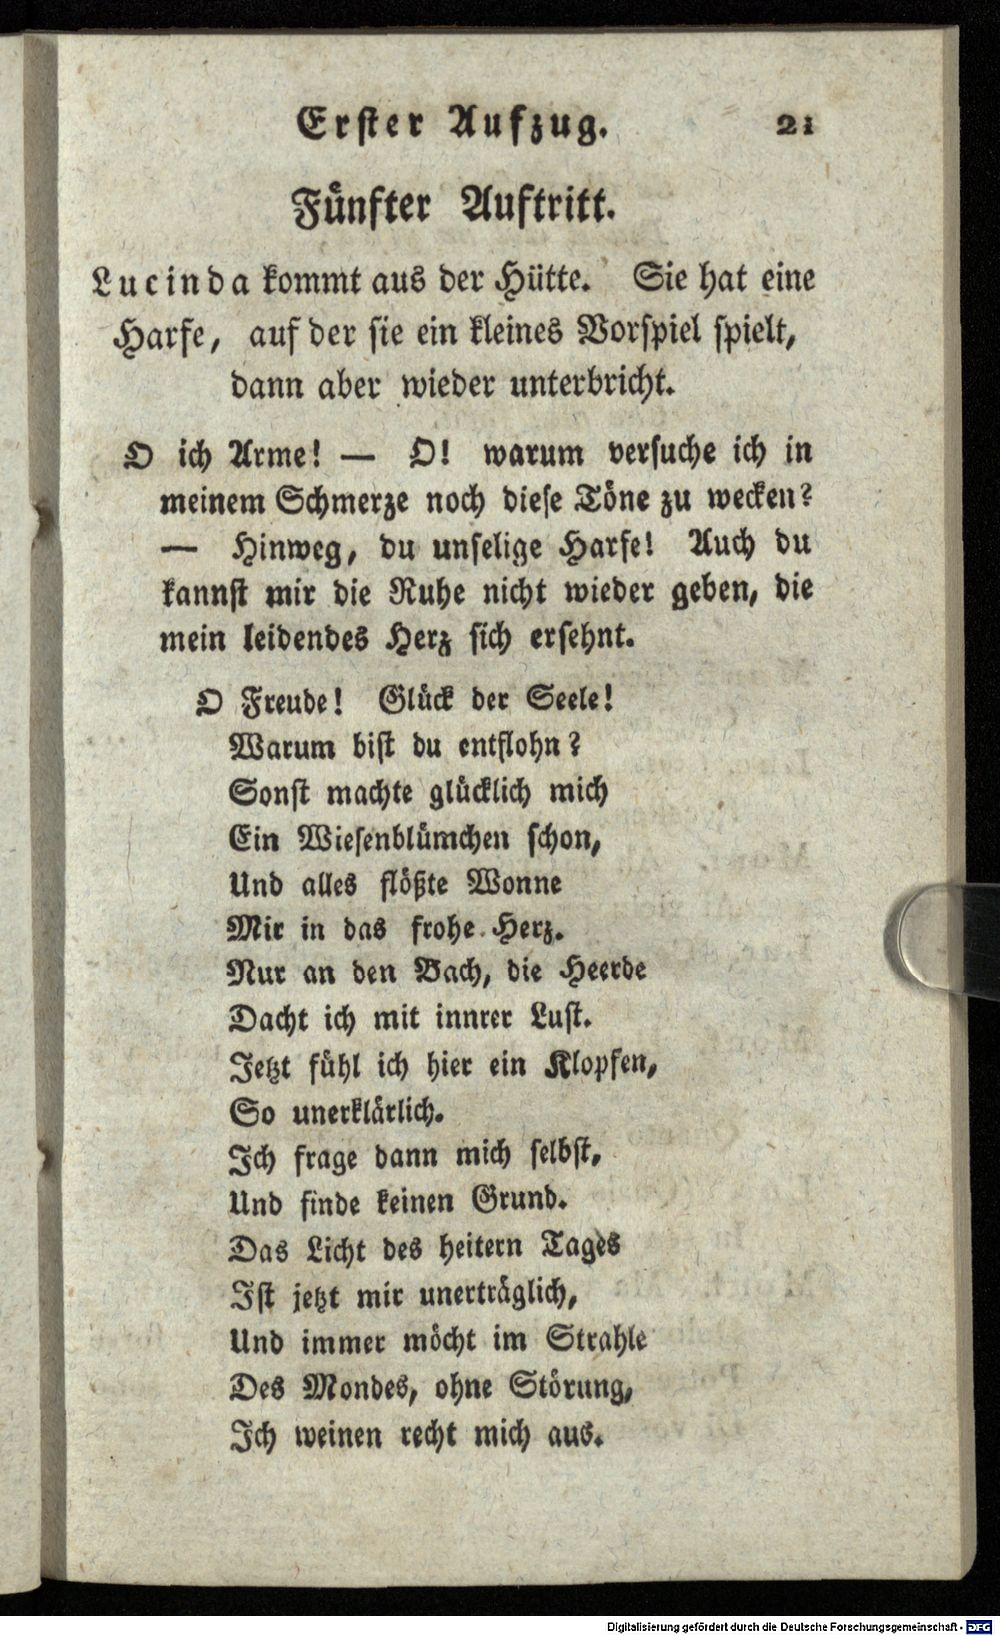 Erster Aufzug. 21
Fünfter Auftritt.
Lucinda kommt aus der Hütte. Sie hat eine
Harfe, auf der sie ein kleines Vorspiel spielt,
dann aber wieder unterbricht.
O ich Arme! — O! warum versuche ich in
meinem Schmerze noch diese Töne zu wecken?
— Hinweg, du unselige Harfe! Auch du
kannst mir die Ruhe nicht wieder geben, die
mein leidendes Herz sich ersehnt.
O Freude! Glück der Seele!
Warum bist du entflohn?
Sonst machte glücklich mich
Ein Wiesenblümchen schon,
Und alles flößte Wonne
Mir in das frohe Herz.
Nur an den Bach, die Heerde
Dacht ich mit innrer Lust.
Jetzt fühl ich hier ein Klopfen,
So unerklärlich.
Ich frage dann mich selbst,
Und finde keinen Grund.
Das Licht des heitern Tages
Ist jetzt mir unerträglich,
Und immer möcht im Strahle
Des Mondes, ohne Störung,
Ich weinen recht mich aus.
Digitalisierung gefördert durch die Deutsche Forschungsgemeinschaft - DFG